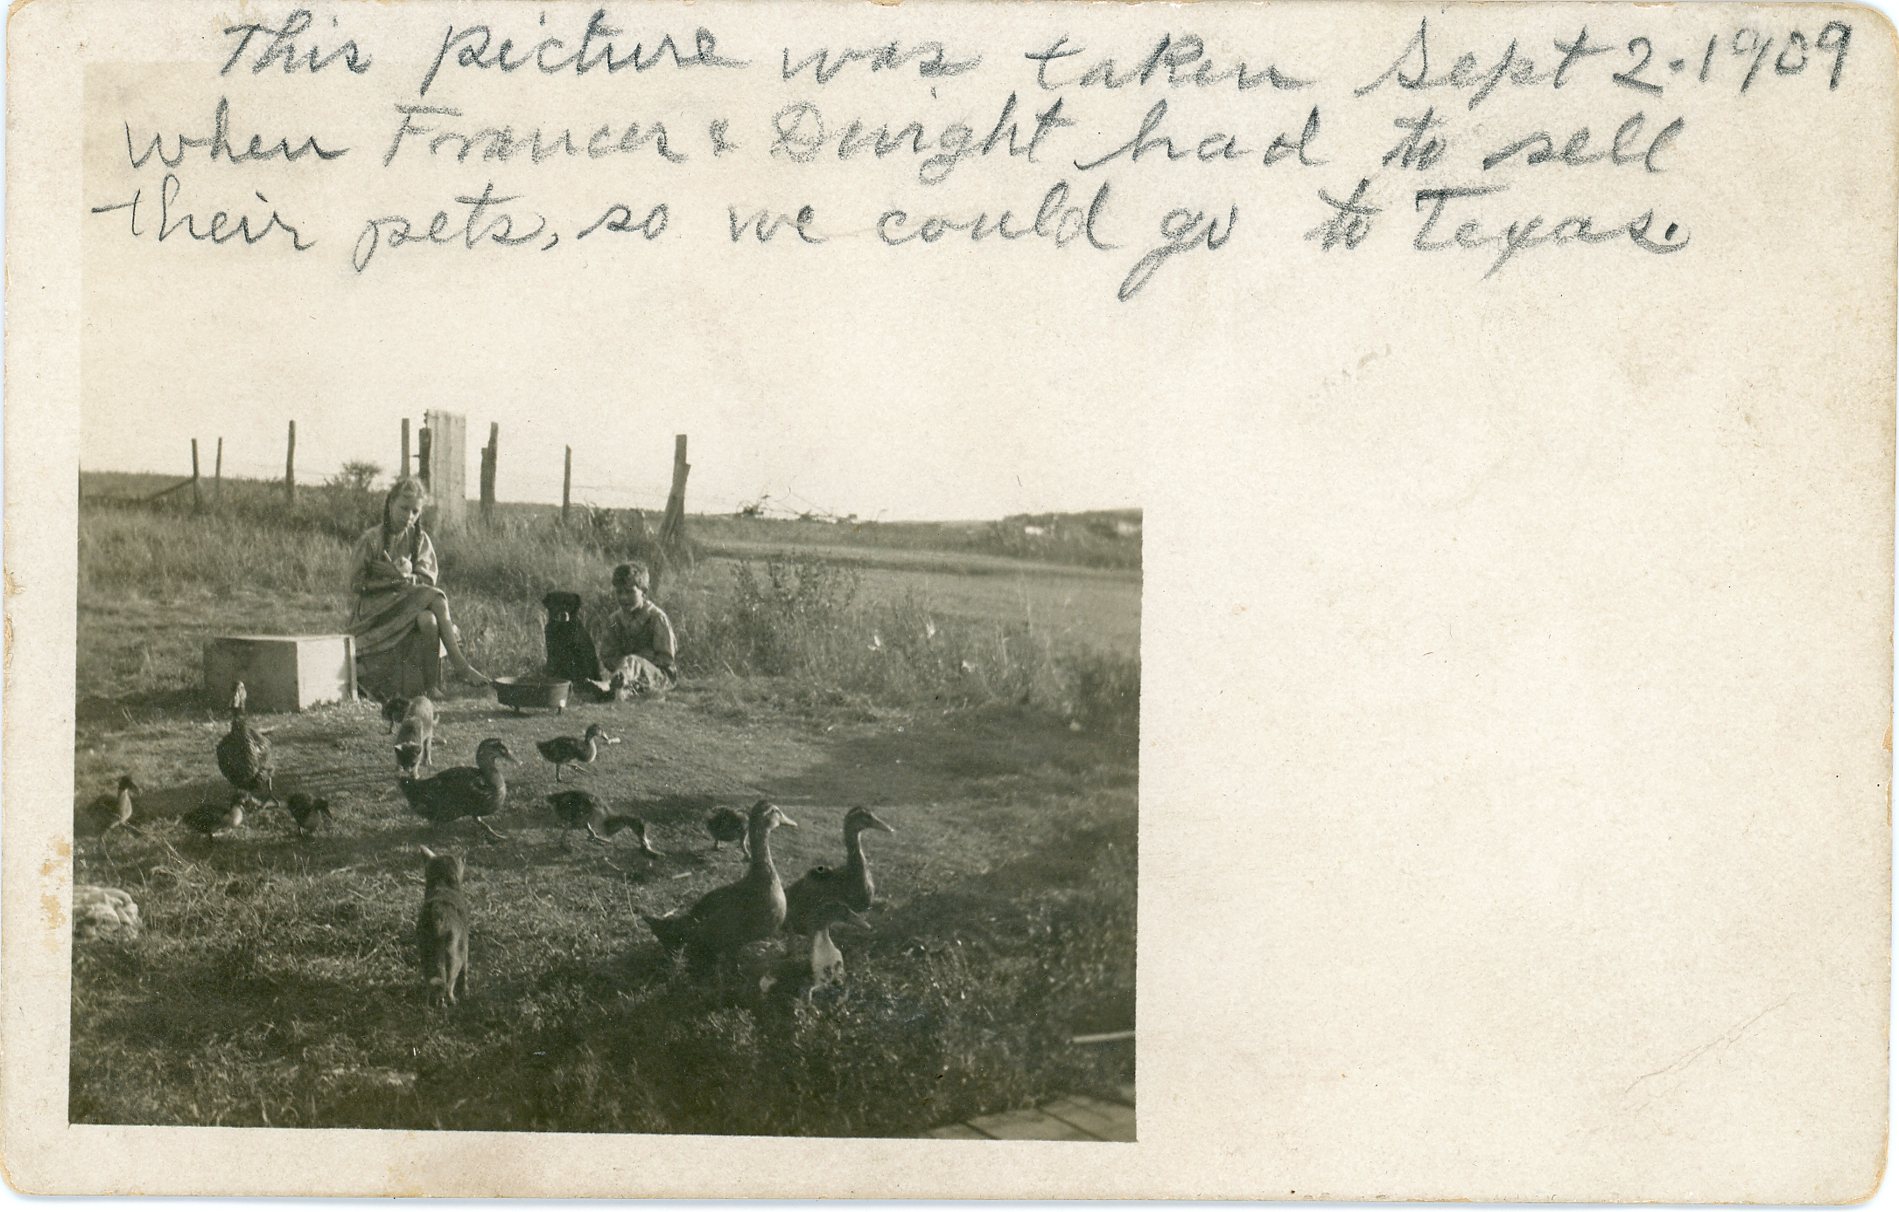 This picture was taken Sept 2-1909
when Frances & Dwight had to sell
their pets, so we could go to Texas.